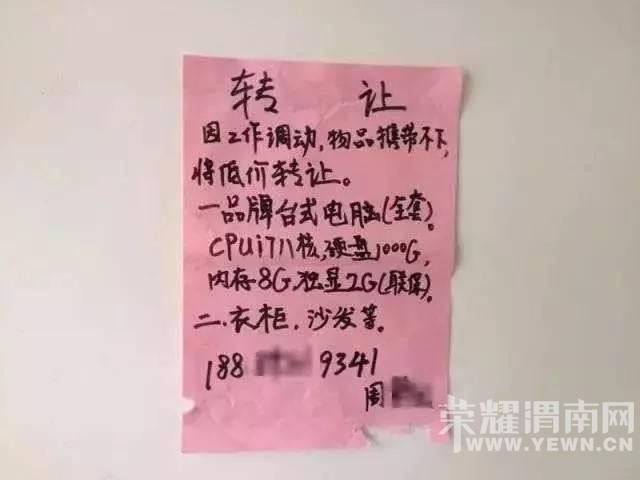 转 让
因工作调动,物品携带不下,
将低价转让。
一品牌台式电脑(全套)。
CPUi7八核,硬盘1000G,
内存8G,独显2G(联保)。
二.衣柜,沙发等。
188 9341
周
荣耀渭南网
WWW.YEWN.CN